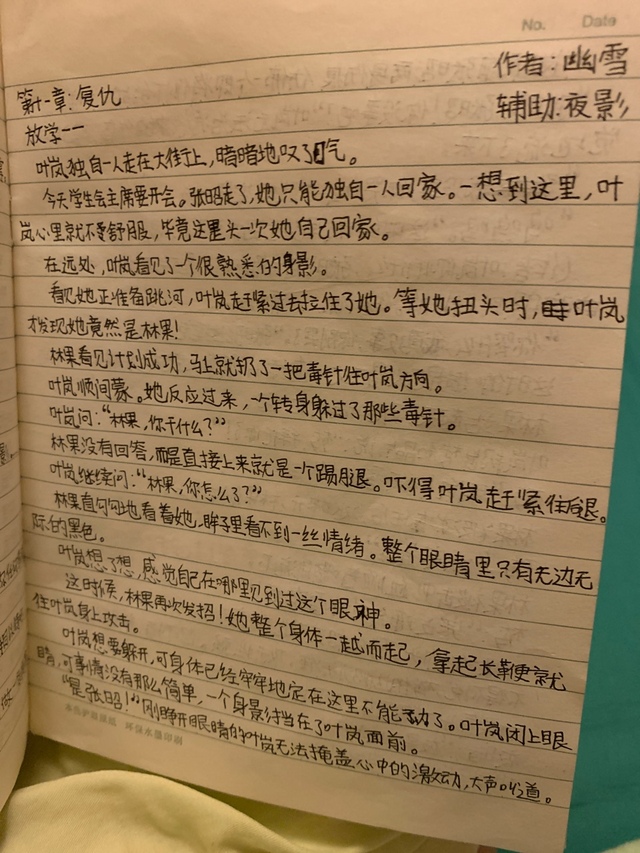 No. Date
作者:幽雪
第十一章:复仇
辅助:夜影
放学——
叶岚独自一人走在大街上,暗暗地叹了口气。
今天学生会主席要开会。张昭走了,她只能独自一人回家。一想到这里,叶
岚心里就不舒服,毕竟这是头一次她自己回家。
在远处,叶岚看见了一个很熟悉的身影。
看见她正准备跳河,叶岚赶紧过去拉住了她。等她扭头时,叶岚
才发现她竟然是林果!
林果看见计划成功,马上就扔了一把毒针往叶岚方向。
叶岚顺间蒙。她反应过来,一个转身躲过了那些毒针。
叶岚问:“林果,你干什么?”
林果没有回答,而是直接上来就是一个踢腿。吓得叶岚赶紧往后退。
叶岚继续问:“林果,你怎么了?”
林果直勾勾地看着她,眸子里看不到一丝情绪。整个眼睛里只有无边无
际的黑色。
叶岚想了想,感觉自己在哪里见到过这个眼神。
这时候,林果再次发招!她整个身体一越而起,拿起长鞭就
往叶岚身上攻击。
叶岚想要躲开,可身体已经牢牢地定在这里不能动了。叶岚闭上眼
睛,可事情没有那么简单,一个身影挡在了叶岚面前。
“是张昭!”刚睁开眼睛的叶岚无法掩盖心中的激动,大声叫道。
环保水墨印刷